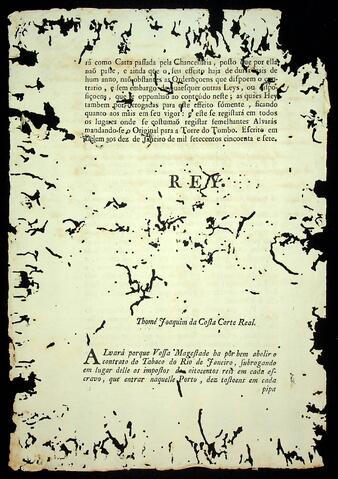 rá como Carta passada pela Chancellaria, posto que por ella
não passe, e ainda que o seu effeito haja de durar mais de
hum anno, não obstantes as Ordenaçoens que dispoem o con-
trario, e sem embargo de quaesquer outras Leys, ou dispo-
siçoens, que se opponhão ao conteúdo neste; as quaes Hey
tambem por derogadas para este effeito sómente, ficando
quanto aos mais em seu vigor: e este se registará em todos
os lugares onde se costumaõ registar semelhantes Alvarás
mandando-se o Original para a Torre do Tombo. Escrito em
Belem aos dez de Janeiro de mil setecentos cincoenta e sete.
REY.
Thomé Joaquim da Costa Corte Real.
ALvará porque Vossa Magestade ha por bem abolir o
contrato do Tabaco do Rio de Janeiro, subrogando
em lugar delle os impostos de oitocentos reis em cada es-
cravo, que entrar naquelle Porto, dez tostoens em cada
pipa